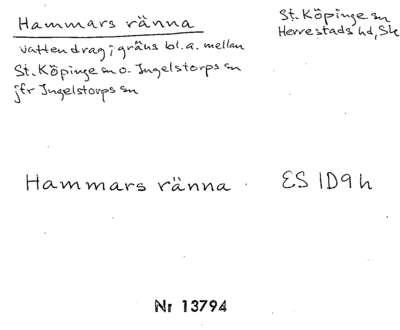 Hammars ränna
St. Köpinge sn
Herrestads hd, Sk
vattendrag i gräns bl.a. mellan
St. Köpinge sn o. Ingelstorps sn
jfr Ingelstorps sn
Hammars ränna
ES 1D9h
Nr 13794